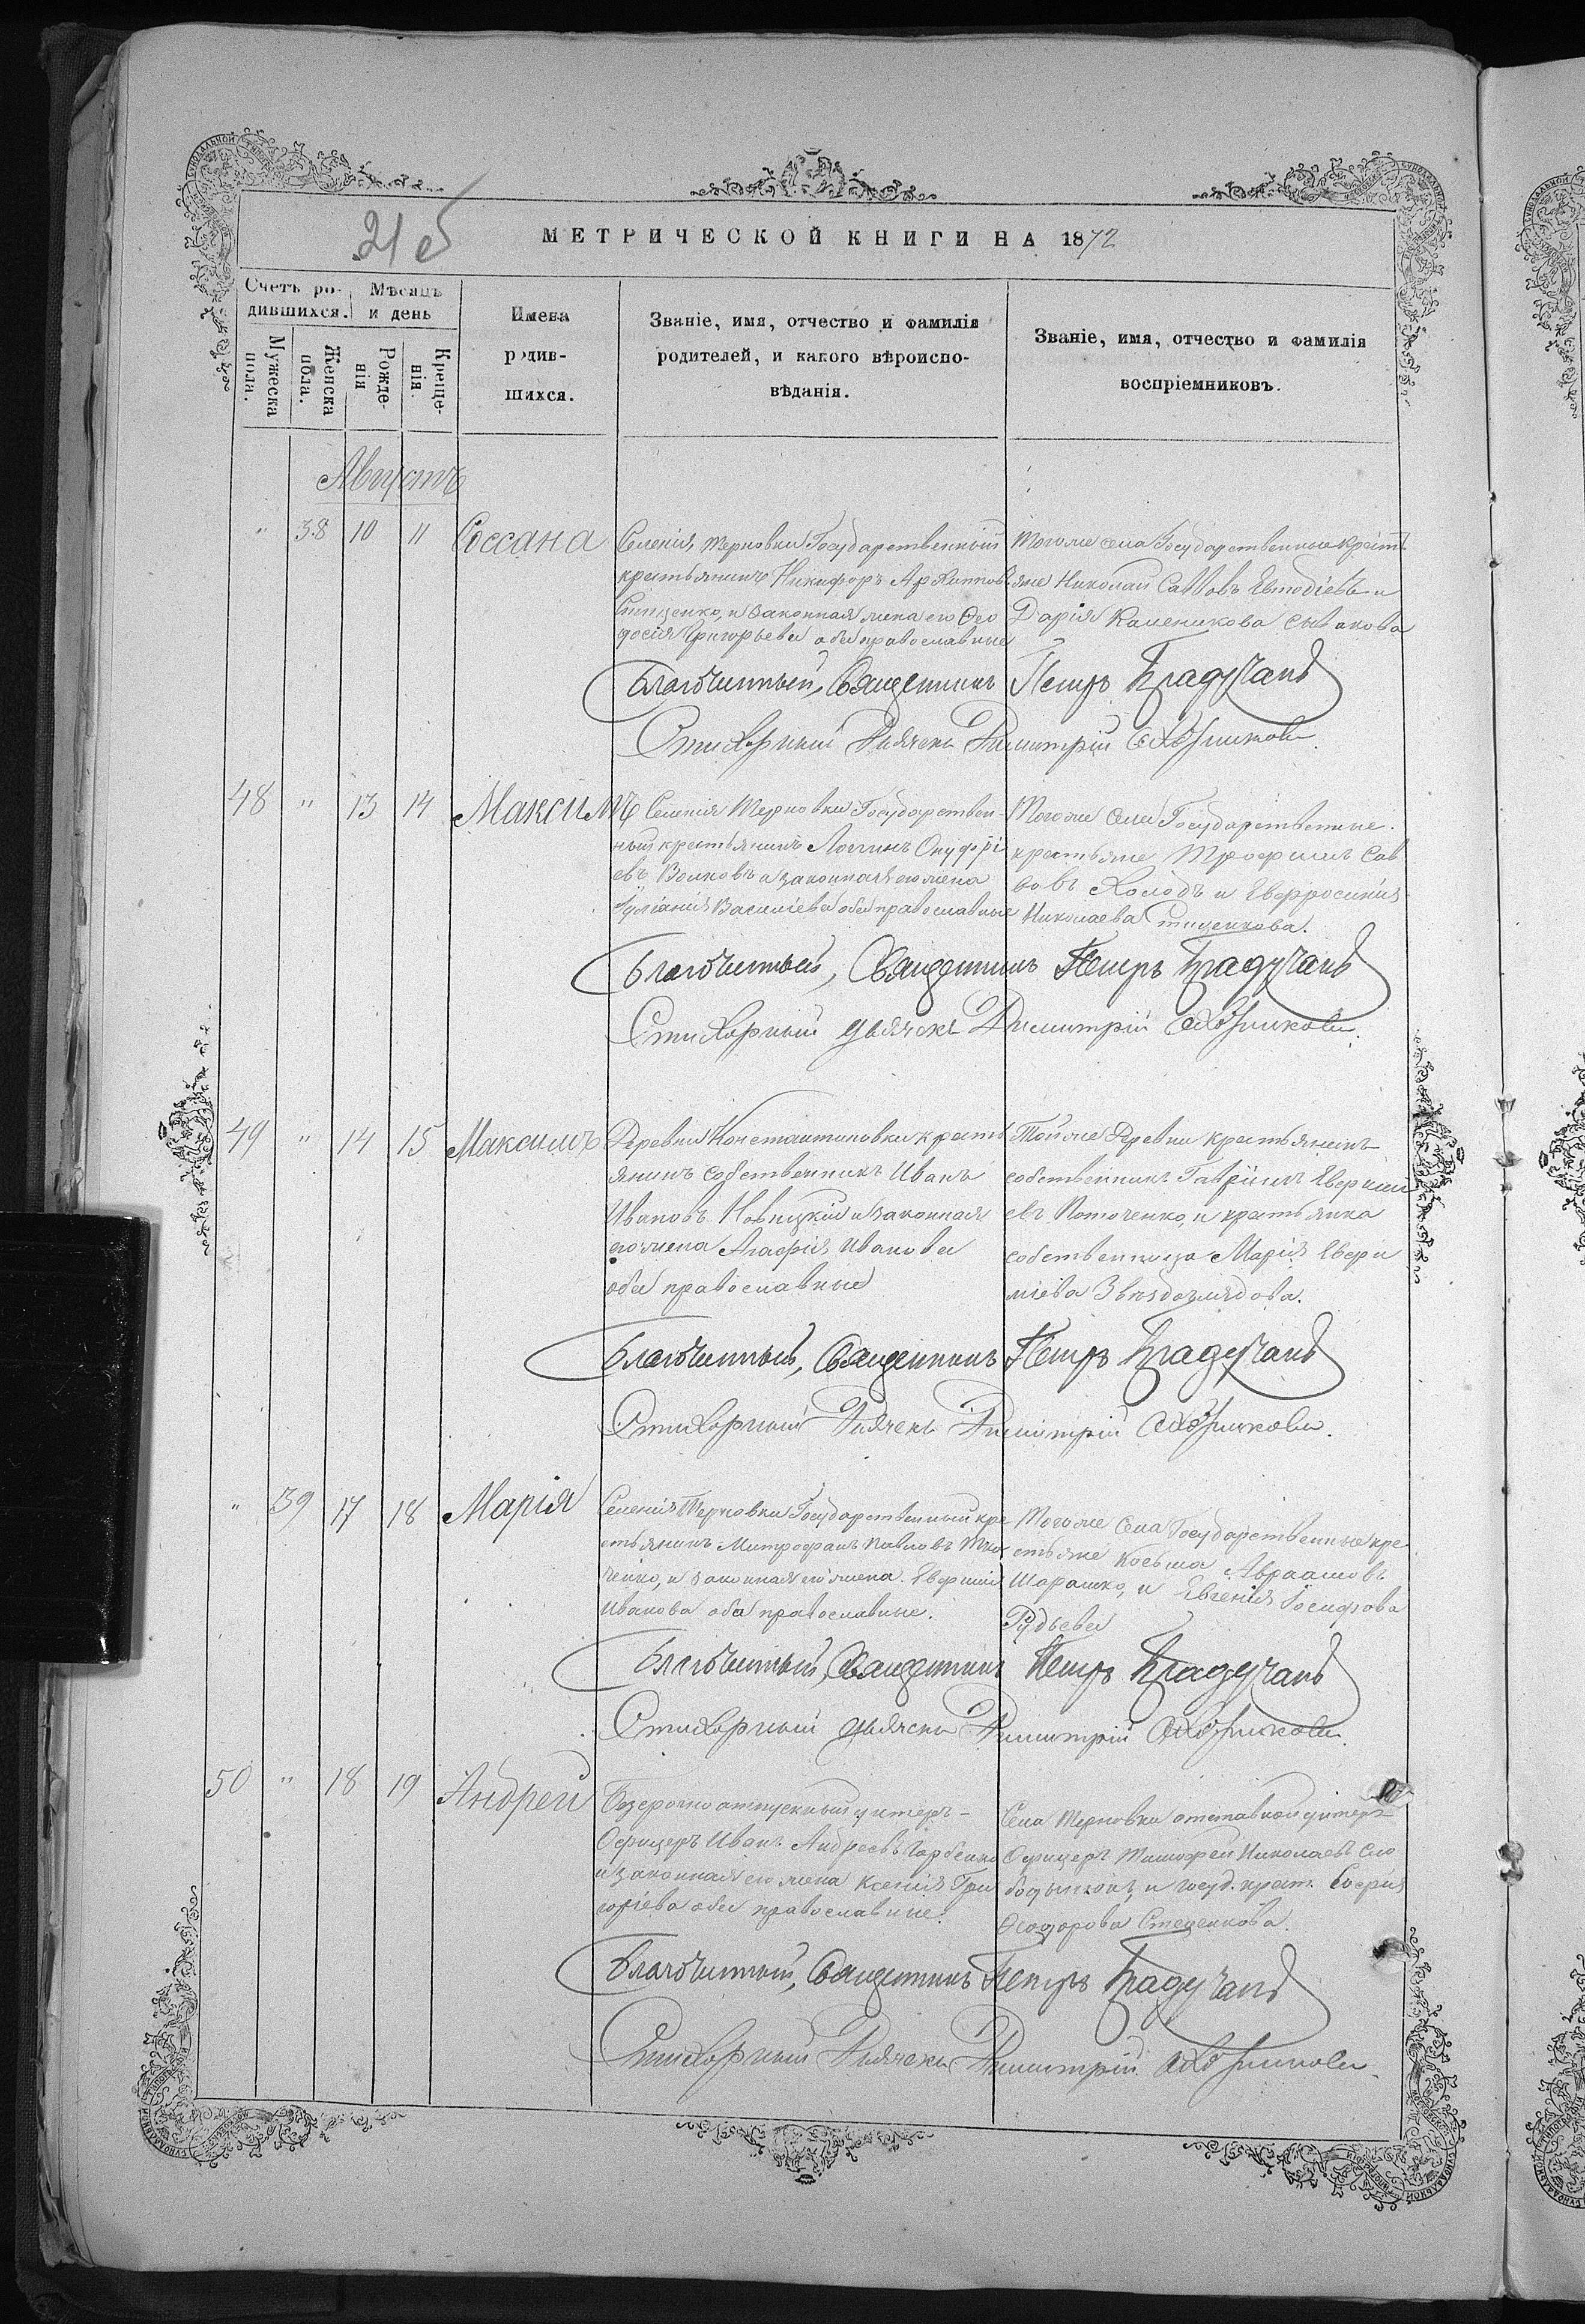 21 об
МЕТРИЧЕСКОЙ КНИГИ НА 1872
Счетъ родившихся.
Мѣсяцъ и день
Имена родившихся.
Званіе, имя, отчество и фамилія родителей, и какого вѣроисповѣданія.
Званіе, имя, отчество и фамилія воспріемниковъ.
Мужеска пола.
Женска пола.
Рожденія
Крещенія.
Августъ
" 38 10 11 Роксана
Селенія Терновки Государственный
крестьянинъ Никифоръ Архипповъ
Стиценко, и законная жена его Ѳео
досія Григорьева оба православные
Тогоже села Государственные крестъ
яне Николай Саввовъ Евтодіевъ и
Дарія Каленикова Сывакова
Благочинный, Священникъ Петръ Брадучанъ
Стихарный Дьячекъ Димитрій
48 " 13 14 Максимъ
Селенія Терновки Государствен
ный крестьянинъ Логгинъ Онуфрі
евъ Волковъ и законная его жена
Іуліанія Василіева оба православные
Тогоже села Государственные
крестьяне Трофимъ Сав
вовъ Колодъ и Евфросинія
Николаева
Благочинный, Священникъ Петръ Брадучанъ
Стихарный дьячекъ Димитрій
49 " 14 15 Максимъ
Деревни Константиновки крестъ
янинъ собственникъ Иванъ
Ивановъ Новицкій и законная
его жена Агафія Иванова
оба православные
Тойже деревни крестьянинъ
собственникъ Гавріилъ Еверкіи
евъ Поточенко, и крестьянка
собственница Марія Ефри
міева
Благочинный, Священникъ Петръ Брадучанъ
Стихарный Дьячекъ Димитрій
" 39 17 18 Марія
Селенія Терновки Государственный кре
стьянинъ Митрофанъ Павловъ Тка
ченко, и законная его жена Евфимія
Иванова оба православные.
Тогоже села Государственные кре
стьяне Косьма Авраамовъ
Шарашко, и Евгенія Іосифова
Рудьева
Благочинный, Священникъ Петръ Брадучанъ
Стихарный дьячекъ Димитрій
50 " 18 19 Андрей
Безсрочноотпускный унтеръ-
Офицеръ Иванъ Андреевъ Горбенко
и законная его жена Ксенія Гри
горіева оба православные.
Села Терновки отставной унтеръ
Офицеръ Тимофей Николаевъ Сло
бодынюкъ, и госуд. крест. Софія
Ѳеодорова Стеценкова.
Благочинный, Священникъ Петръ Брадучанъ
Стихарный Дьячекъ Димитрій